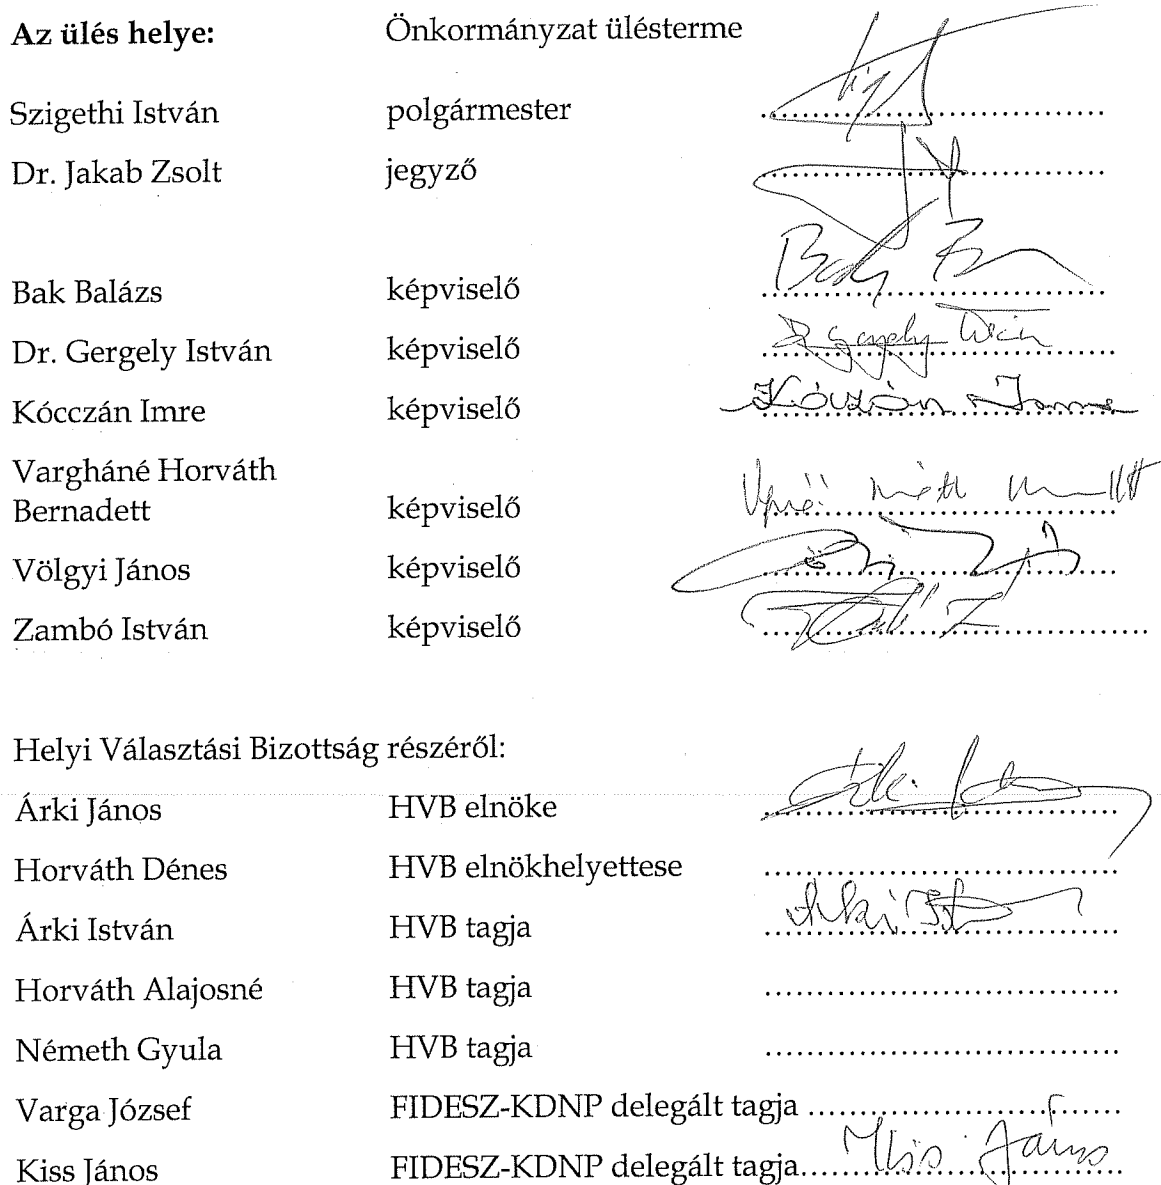 Az ülés helye: Önkormányzat ülésterme
Szigethi István polgármester ..............................
Dr. Jakab Zsolt jegyző ..............................
Bak Balázs képviselő Bak
Dr. Gergely István képviselő Dr Gergely István
Kócczán Imre képviselő Kóczán Imre
Vargháné Horváth
Bernadett képviselő ..............................
Völgyi János képviselő ..............................
Zambó István képviselő ..............................
Helyi Választási Bizottság részéről:
Árki János HVB elnöke Árki
Horváth Dénes HVB elnökhelyettese ..............................
Árki István HVB tagja Árki
Horváth Alajosné HVB tagja ..............................
Németh Gyula HVB tagja ..............................
Varga József FIDESZ-KDNP delegált tagja ..............................
Kiss János FIDESZ-KDNP delegált tagja Kiss János